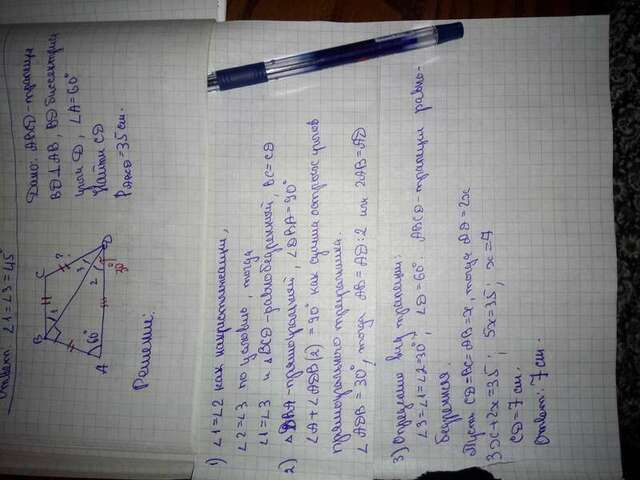 Ответ ∠1=∠3=45°
B
C
1
?
3
A
60°
2
D
30°
Дано: ABCD-трапеция
BD⊥AB, BD биссектриса
угла D, ∠A=60°
Найти CD
P ABCD=35 см.
Решение:
1) ∠1=∠2 как накрестлежащии,
∠2=∠3 по условию, тогда
∠1=∠3 и △BCD-равнобедренный, BC=CD
2) △DBA-прямоугольный, ∠DBA=90°
∠A+∠ADB(2)=90° как сумма острых углов
прямоугольного треугольника.
∠ADB=30°, тогда AB=AD:2 или 2AB=AD
3) Определим вид трапеции:
∠3=∠1=∠2=30°, ∠D=60°. ABCD-трапеция равно-
бедренная.
Пусть CD=BC=AB=x, тогда AD=2x
3x+2x=35; 5x=35; x=7
CD=7 см.
Ответ: 7 см.